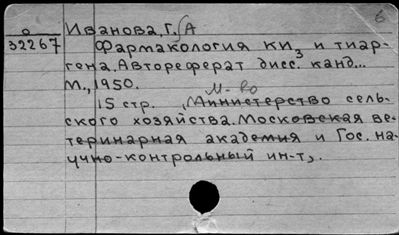 6
о Иванова, Г. А
32267 Фармакология КИ3 и тиар-
гена. Автореферат дисс. канд...
М., 1950.
М-во
15 стр. Министерство сель-
ского хозяйства. Московская ве-
теринарная академия и Гос. на-
учно-контрольный ин-т,.